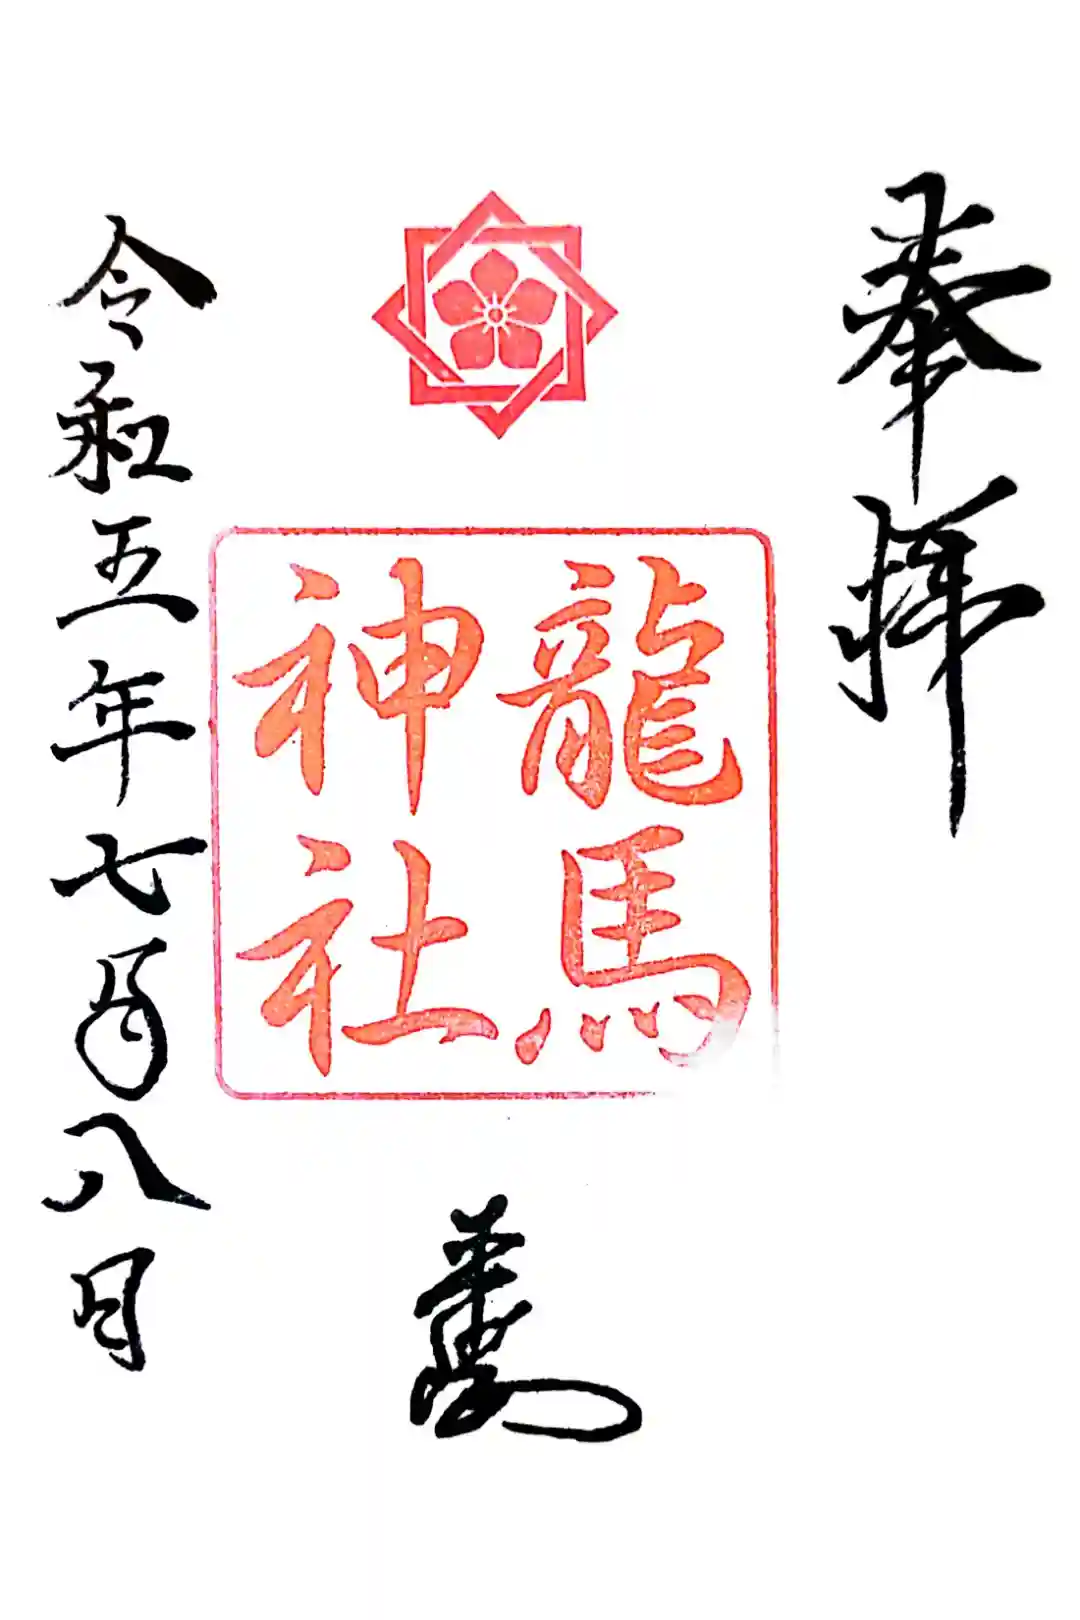 奉拝
龍馬
神社
令和五年七月八日